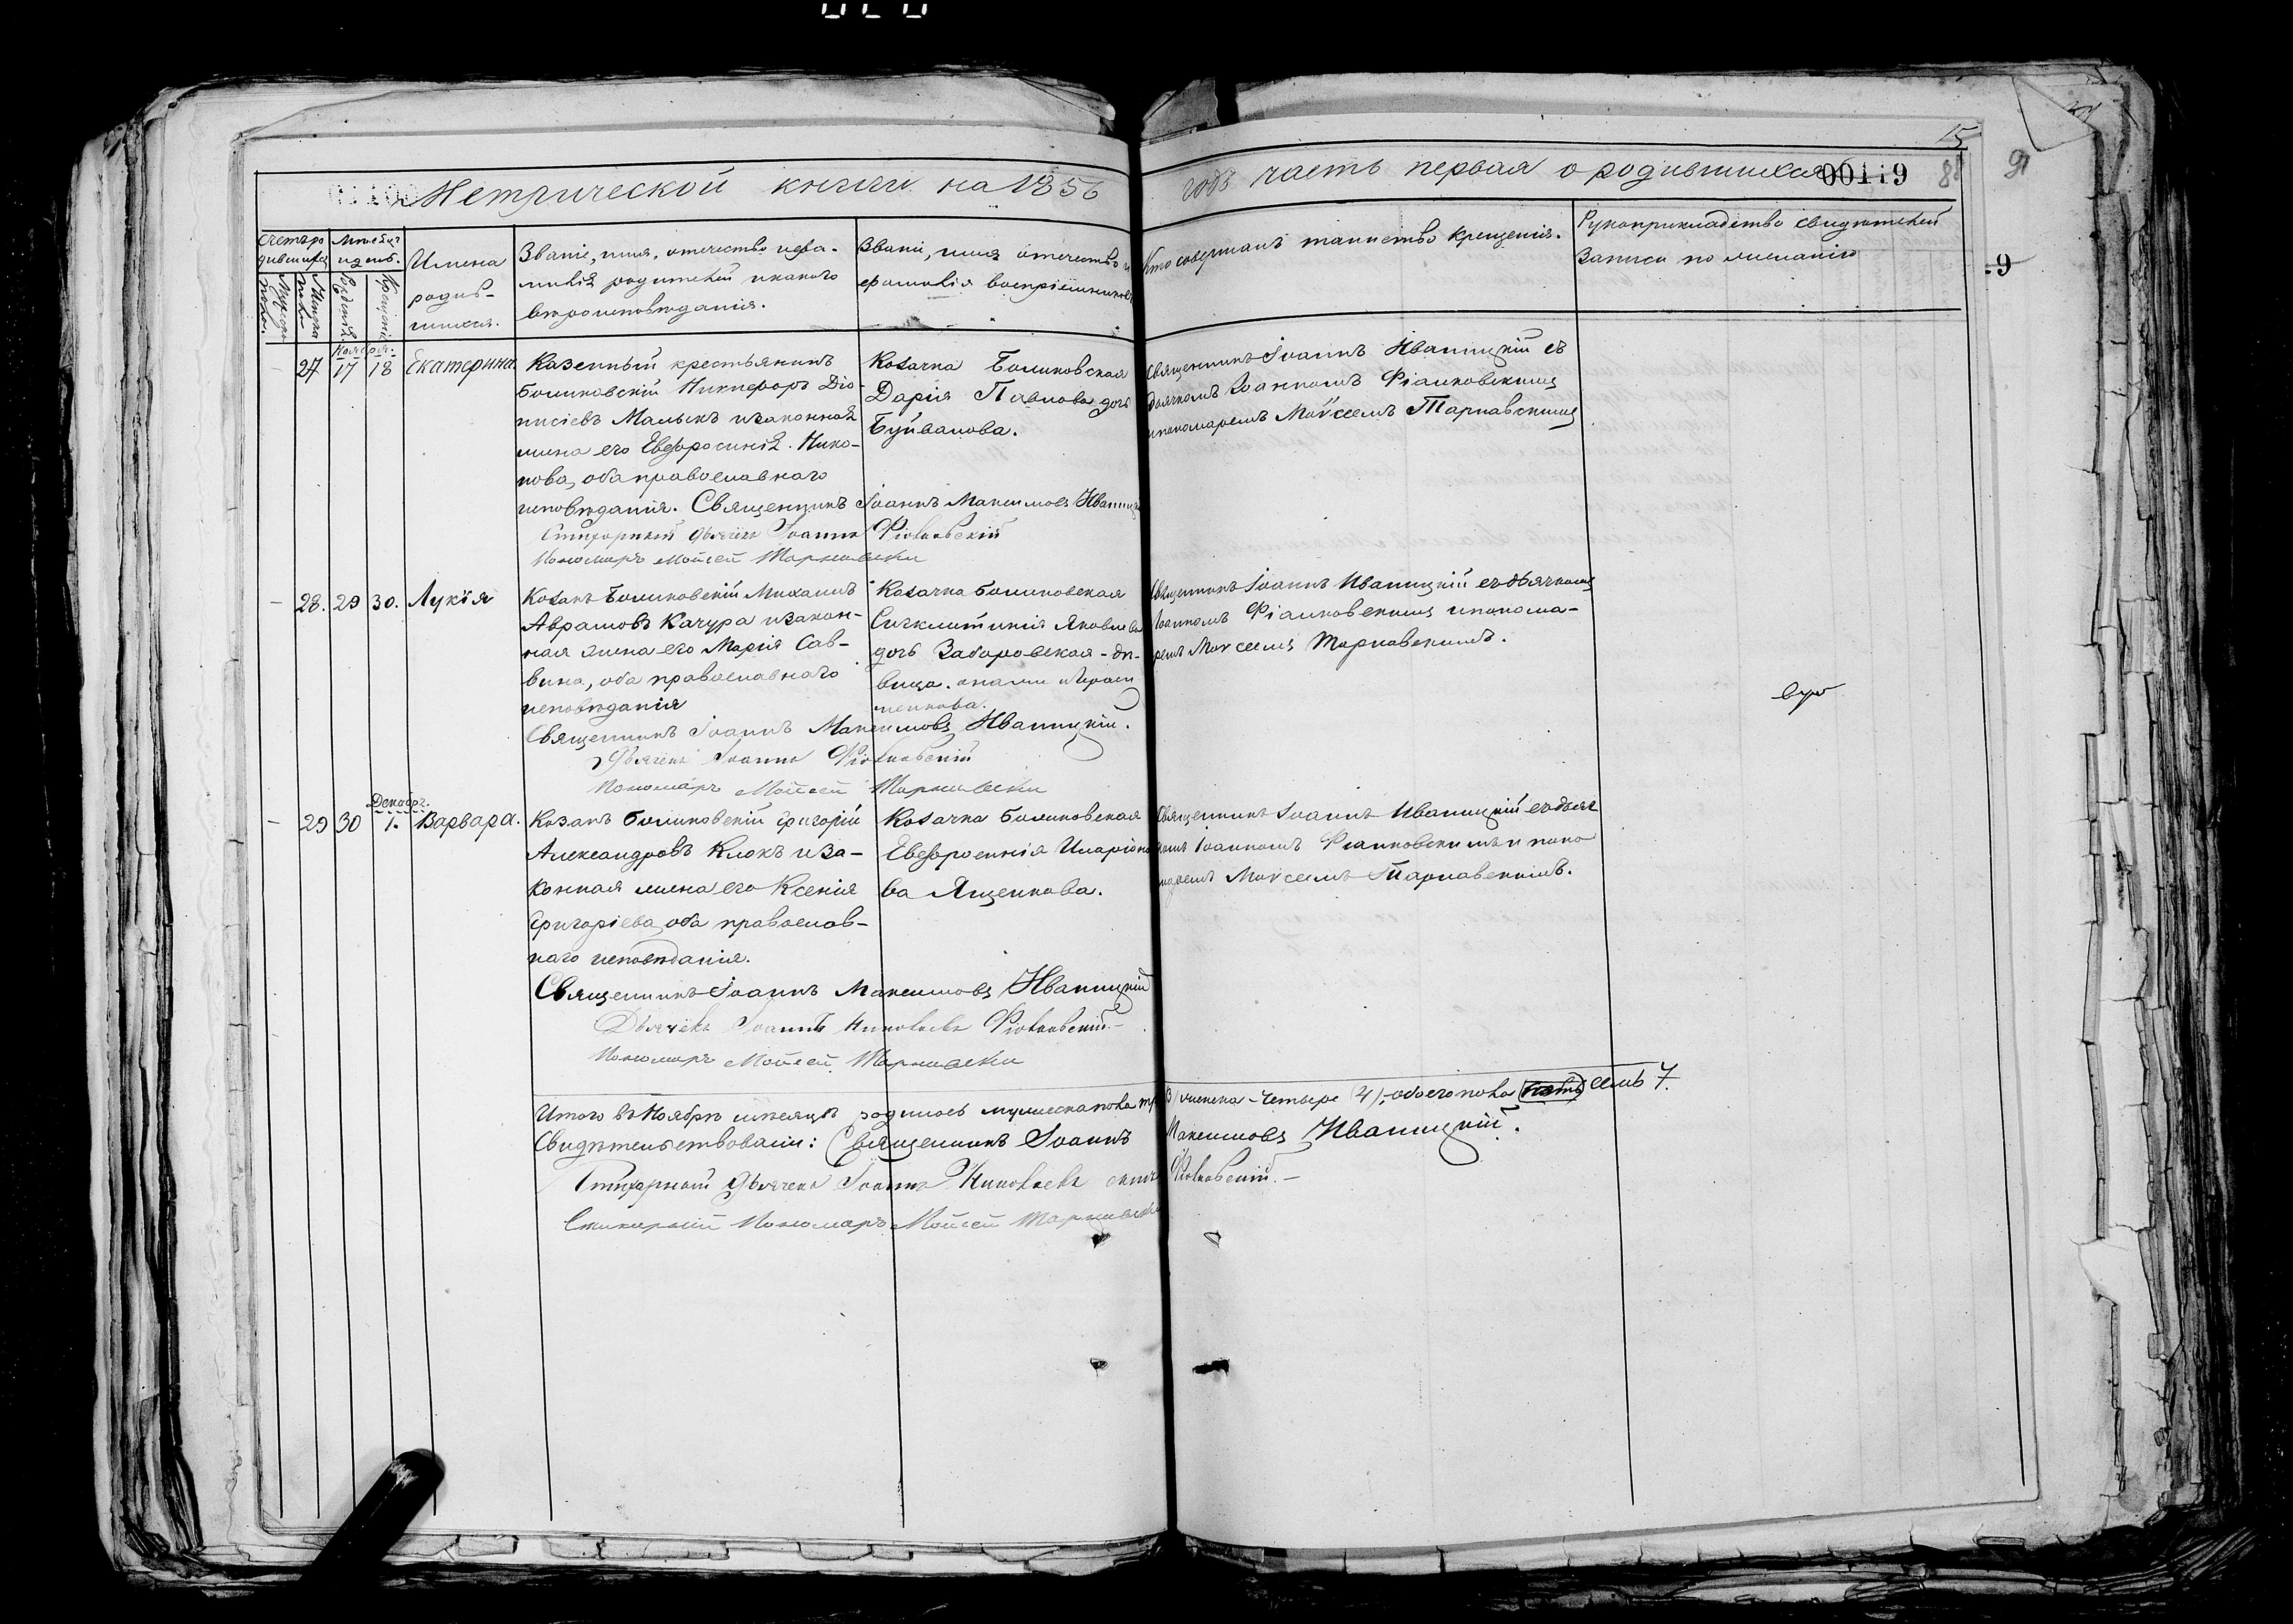 Метрической книги на 1856 годъ часть первая о родившихся 00119
15
Счетъ родившихся
Мѣсяцъ и день.
Имена родившихся.
Званіе, имя, отечество и фамилія родителей и какого вѣроисповѣданія.
Званіе, имя отечество и фамилія воспріемниковъ
Кто совершалъ таинство крещенія.
Рукоприкладство свидѣтелей записи по желанію
Мужеска пола.
Женска пола
Рожденія
Крещенія
Ноября.
27 17 18 Екатерина.
Казенный крестьянинъ
Никифоръ Діо-
нисіевъ Малыкъ и законная
жена его Евфросинія. Нико-
нова, оба православнаго
исповѣданія. Священникъ Іоаннъ Максимовъ Иваницкій
Стихарный дьячекъ Іоаннъ Фіалковскій
Пономарь Мойсей Тарнавскій
Козачка
Дарія Павлова дочь
Буйвалова.
Священникъ Іоаннъ Иваницкій съ
дьячкомъ Іоанномъ Фіалковскимъ
и пономаремъ Моѵсеемъ Тарнавскимъ
28. 29 30. Лукія
Козакъ Михаилъ
Аврамовъ Качура и закон-
ная жена его Марія Сав-
вина, оба православнаго
исповѣданія
Священникъ Іоаннъ Максимовъ Иваницкій.
Дьячекъ Іоаннъ Фіалковскій
Пономарь Мойсей Тарнавскій
Козачка
Яковлева
дочь Заборовская - дѣ-
вица.
Священникъ Іоаннъ Иваницкій съ дьячкомъ
Іоанномъ Фіалковскимъ и понома-
ремъ Моѵсеемъ Тарнавскимъ.
Декабр.
29 30 1. Варвара.
Козакъ Григорій
Александровъ Клокъ и за-
конная жена его Ксенія
Григоріева, оба православ-
наго исповѣданія.
Священникъ Іоаннъ Максимовъ Иваницкій
Дьячекъ Іоаннъ Николаевъ Фіалковскій.-
Пономарь Мойсей Тарнавскій
Козачка
Евфросинія Иларіоно
ва Ященкова.
Священникъ Іоаннъ Иваницкій съ дьяч
комъ Іоанномъ Фіалковскимъ и поно
маремъ Моѵсеемъ Тарнавскимъ.
Итого въ Ноябрѣ мѣсяцѣ родилось мужеска пола три женска - четыре (4), - обоего пола семь 7.
Свидѣтельствовали: Священникъ Іоаннъ Максимовъ Иваницкій.
Стихарный Дьячекъ Іоаннъ Николаевъ Фіалковскій. -
Стихарный Пономарь Мойсей Тарнавскій